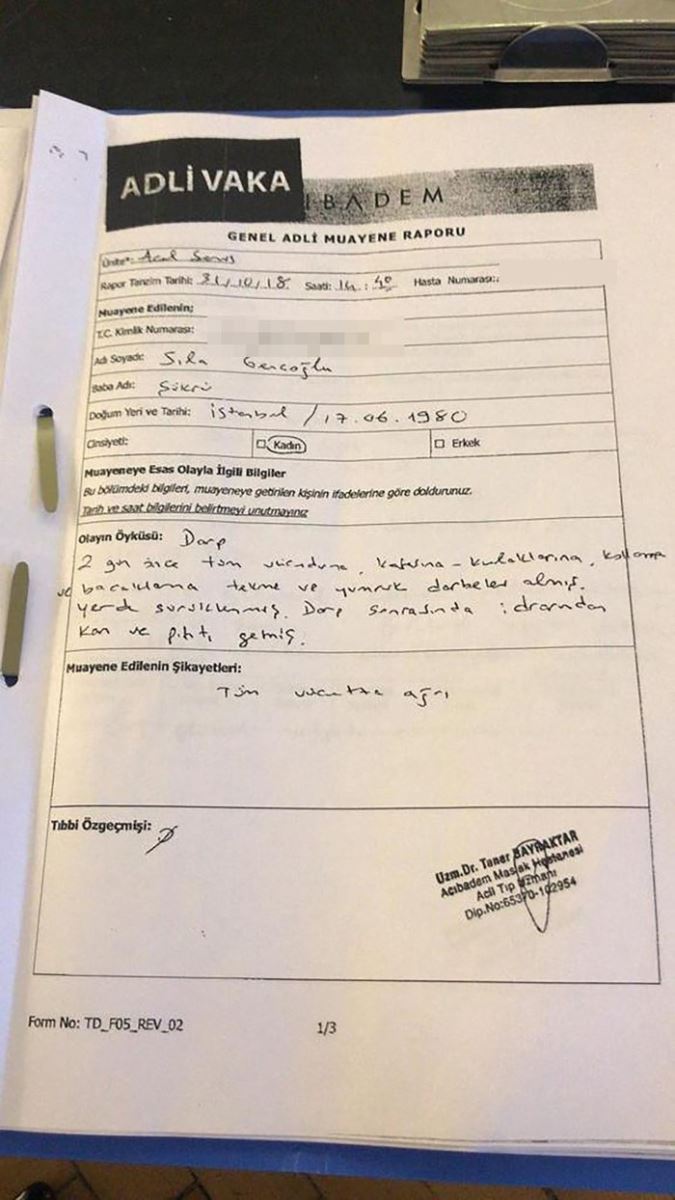 ADLİ VAKA
IBADEM
GENEL ADLİ MUAYENE RAPORU
Ünite: Acil Servis
Rapor Tanzim Tarihi: 31/10/18 Saati: 14:40 Hasta Numarası:
Muayene Edilenin;
T.C. Kimlik Numarası:
Adı Soyadı: Sıla Gençoğlu
Baba Adı: Şükrü
Doğum Yeri ve Tarihi: İstanbul / 17.06.1980
Cinsiyeti: Kadın Erkek
Muayeneye Esas Olayla İlgili Bilgiler
Bu bölümdeki bilgileri, muayeneye getirilen kişinin ifadelerine göre doldurunuz.
Tarih ve saat bilgilerini belirtmeyi unutmayınız
Olayın Öyküsü: Darp
2 gün önce tüm vücuduna, kafasına - kulaklarına, kollarına
ve bacaklarına tekme ve yumruk darbeleri almış.
yerde sürüklenmiş. Darp sonrasında idrarından
kan ve pıhtı gelmiş.
Muayene Edilenin Şikayetleri:
Tüm vücutta ağrı
Tıbbi Özgeçmişi: Ø
Uzm.Dr. Taner BAYRAKTAR
Acıbadem Maslak Hastanesi
Acil Tıp Uzmanı
Dip.No:65370-102954
Form No: TD_F05_REV_02
1/3